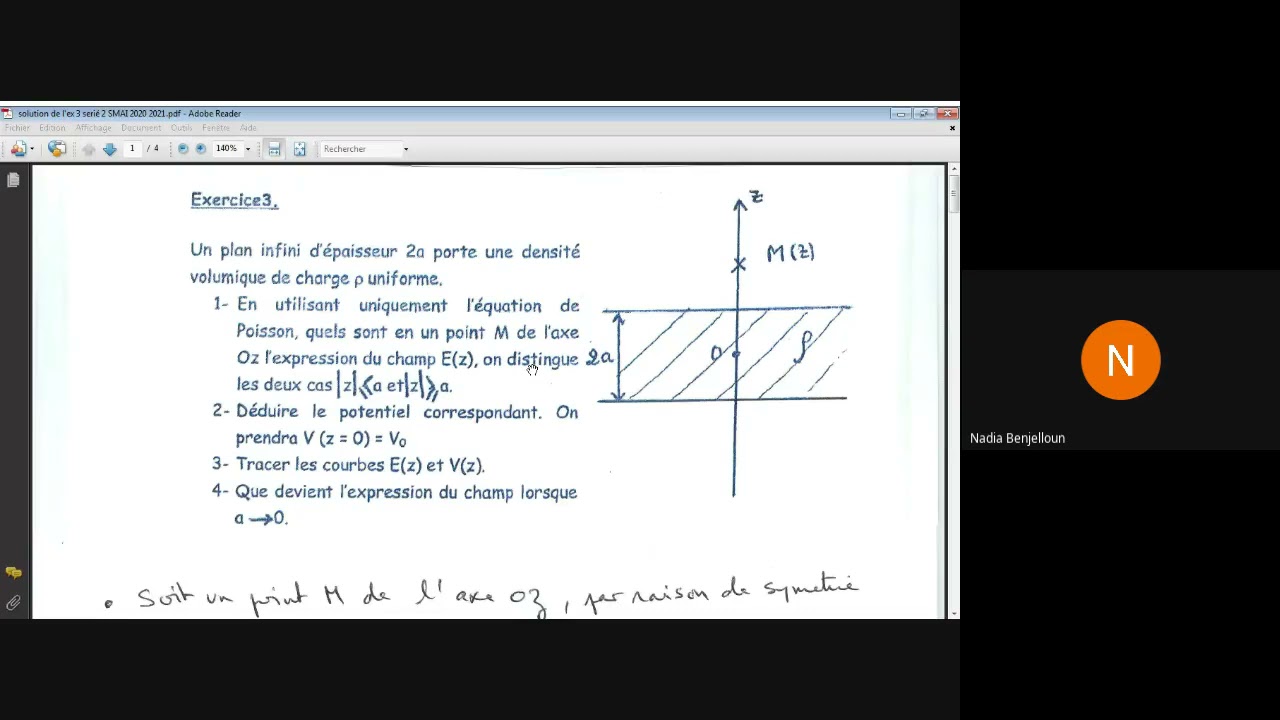 solution de l'ex 3 serié 2 SMAI 2020 2021.pdf - Adobe Reader
Fichier Edition Affichage Document Outils Fenêtre Aide
1 / 4 140% Rechercher
Exercice3.
z
M(z)
Un plan infini d'épaisseur 2a porte une densité
volumique de charge ρ uniforme.
1- En utilisant uniquement l'équation de
Poisson, quels sont en un point M de l'axe
Oz l'expression du champ E(z), on distingue
les deux cas |z|⩽a et |z|⩾a.
2a
O
ρ
2- Déduire le potentiel correspondant. On
prendra V (z = 0) = V₀
3- Tracer les courbes E(z) et V(z).
4- Que devient l'expression du champ lorsque
a →0.
• Soit un point M de l'axe oz, par raison de symetrie
N
Nadia Benjelloun